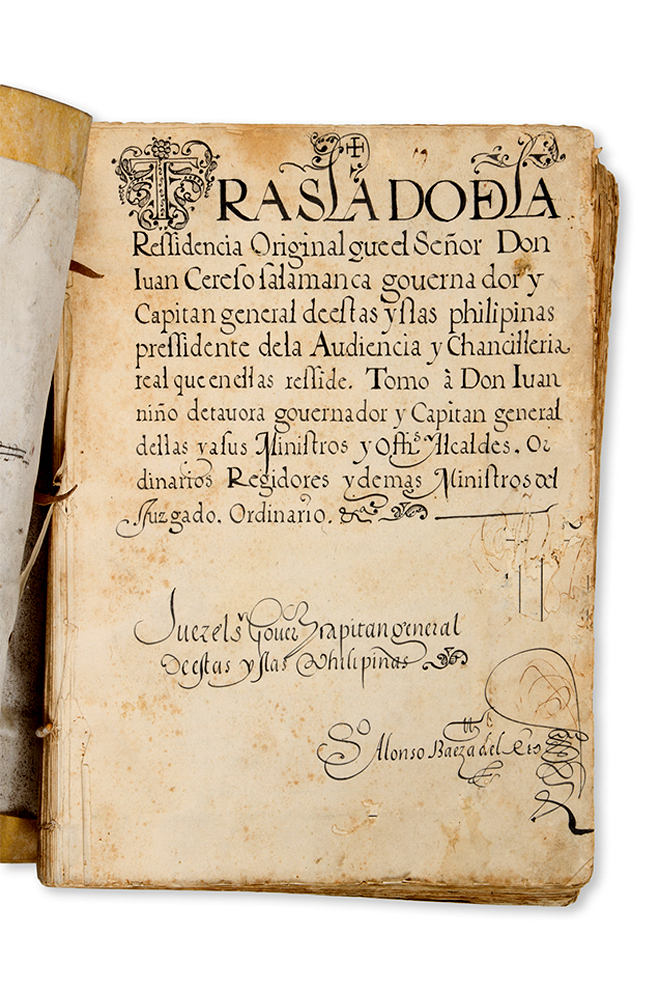 TRASLADO DE LA
Ressidencia Original que el Señor Don
Iuan Cereso salamanca governador y
Capitan general de estas yslas philipinas
pressidente de la Audiencia y Chancilleria
real que en ellas resside. Tomo à Don Iuan
niño de tavora governador y Capitan general
dellas y a sus Ministros y Offi.s Alcaldes. Or
dinarios Regidores y demas Ministros del
Juzgado. Ordinario.
Juez el s.r Gover.or y capitan general
De estas yslas Philipinas
S.o Alonso Baeza del Rio